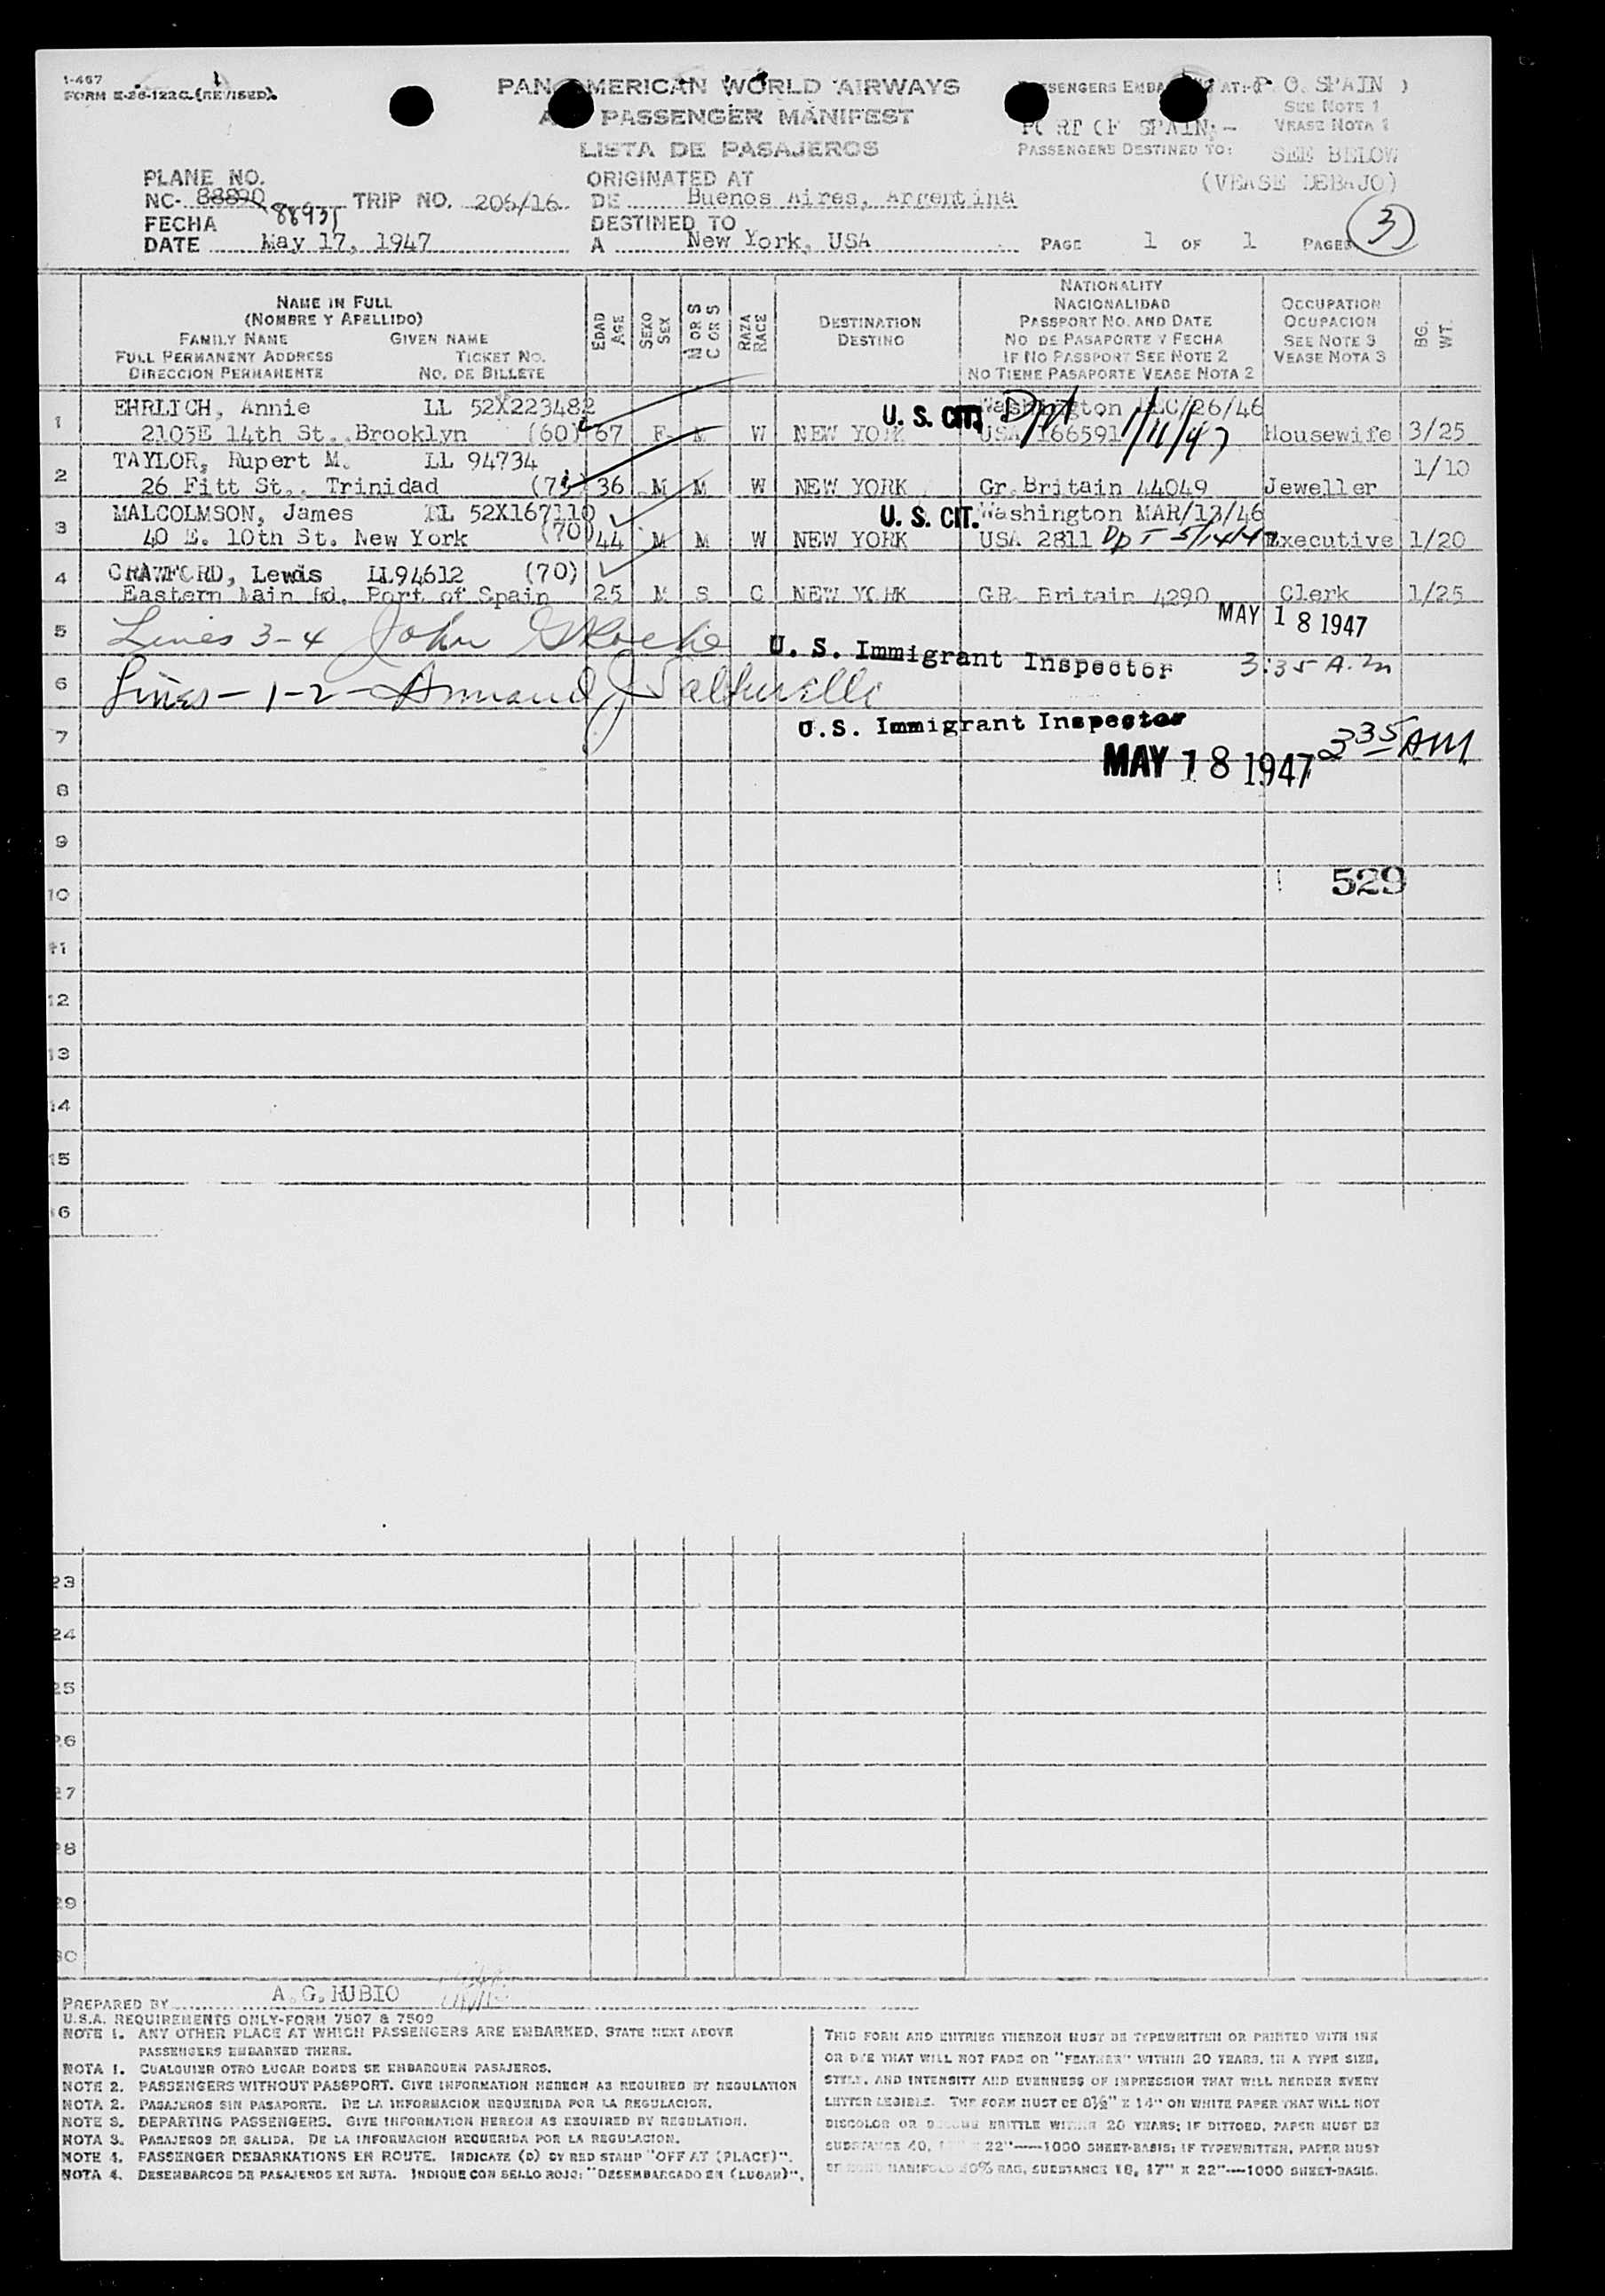 I-467
FORM E-26-122C (REVISED)
PAN AMERICAN WORLD AIRWAYS
PASSENGER MANIFEST
LISTA DE PASAJEROS
AT: P. O. SPAIN )
SEE NOTE 1
VEASE NOTA 1
PORT OF SPAIN;-
PASSENGERS DESTINED TO:
SEE BELOW
(VEASE DEBAJO)
PLANE NO.
NC- 88820 88935 TRIP NO. 206/16
ORIGINATED AT
DE Buenos Aires, Argentina
FECHA
DATE May 17, 1947
DESTINED TO
A New York, USA
PAGE 1 OF 1 PAGES
3
NAME IN FULL
(NOMBRE Y APELLIDO)
FAMILY NAME GIVEN NAME
FULL PERMANENT ADDRESS TICKET NO.
DIRECCION PERMANENTE NO. DE BILLETE
EDAD
AGE
SEXO
SEX
M OR S
C OR S
RAZA
RACE
DESTINATION
DESTINO
NATIONALITY
NACIONALIDAD
PASSPORT NO. AND DATE
NO DE PASAPORTE Y FECHA
IF NO PASSPORT SEE NOTE 2
NO TIENE PASAPORTE VEASE NOTA 2
OCCUPATION
OCUPACION
SEE NOTE 3
VEASE NOTA 3
BG.
WT.
1 EHRLICH, Annie LL 52X223482 U. S. CIT. Washington DEC/26/46
2105E 14th St. Brooklyn (60) 67 F M W NEW YORK USA 166591 1/11/47 Housewife 3/25
2 TAYLOR, Rupert M. LL 94734 1/10
26 Fitt St., Trinidad 36 M M W NEW YORK Gr.Britain 44049 Jeweller
3 MALCOLMSON, James LL 52X167110 U. S. CIT. Washington MAR/13/46
40 E. 10th St. New York (70) 44 M M W NEW YORK USA 2811 5/14/47 Executive 1/20
4 CRAWFORD, Lewis LL94612 (70)
Eastern Main Rd. Port of Spain 25 M S C NEW YORK GR. Britain 4290 Clerk 1/25
MAY 18 1947
5 Lines 3-4 John
U. S. Immigrant Inspector 3:35 A.m
6 Lines-1-2- Armand J
U.S. Immigrant Inspector
7 3 35 AM
MAY 18 1947
8
9
10 529
11
12
13
14
15
16
23
24
25
26
27
28
29
30
PREPARED BY A.G.RUBIO
U.S.A. REQUIREMENTS ONLY-FORM 7507 & 7509
NOTE 1. ANY OTHER PLACE AT WHICH PASSENGERS ARE EMBARKED, STATE NEXT ABOVE
PASSENGERS EMBARKED THERE.
NOTA 1. CUALQUIER OTRO LUGAR DONDE SE EMBARQUEN PASAJEROS.
NOTE 2. PASSENGERS WITHOUT PASSPORT. GIVE INFORMATION HEREON AS REQUIRED BY REGULATION
NOTA 2. PASAJEROS SIN PASAPORTE. DE LA INFORMACION REQUERIDA POR LA REGULACION.
NOTE 3. DEPARTING PASSENGERS. GIVE INFORMATION HEREON AS REQUIRED BY REGULATION.
NOTA 3. PASAJEROS DE SALIDA. DE LA INFORMACION REQUERIDA POR LA REGULACION.
NOTE 4. PASSENGER DEBARKATIONS EN ROUTE. INDICATE (D) BY RED STAMP "OFF AT (PLACE)".
NOTA 4. DESEMBARCOS DE PASAJEROS EN RUTA. INDIQUE CON SELLO ROJO: "DESEMBARCADO EN (LUGAR)".
THIS FORM AND ENTRIES THEREON MUST BE TYPEWRITTEN OR PRINTED WITH INK
OR DYE THAT WILL NOT FADE OR "FEATHER" WITHIN 20 YEARS, IN A TYPE SIZE,
STYLE, AND INTENSITY AND EVENNESS OF IMPRESSION THAT WILL RENDER EVERY
LETTER LEGIBLE. THE FORM MUST BE 8½" X 14" ON WHITE PAPER THAT WILL NOT
DISCOLOR OR BECOME BRITTLE WITHIN 20 YEARS; IF DITTOED, PAPER MUST BE
SUBSTANCE 40, 17" X 22"—1000 SHEET-BASIS; IF TYPEWRITTEN, PAPER MUST
BE BOND MANIFOLD 50% RAG, SUBSTANCE 18, 17" X 22"—1000 SHEET-BASIS.